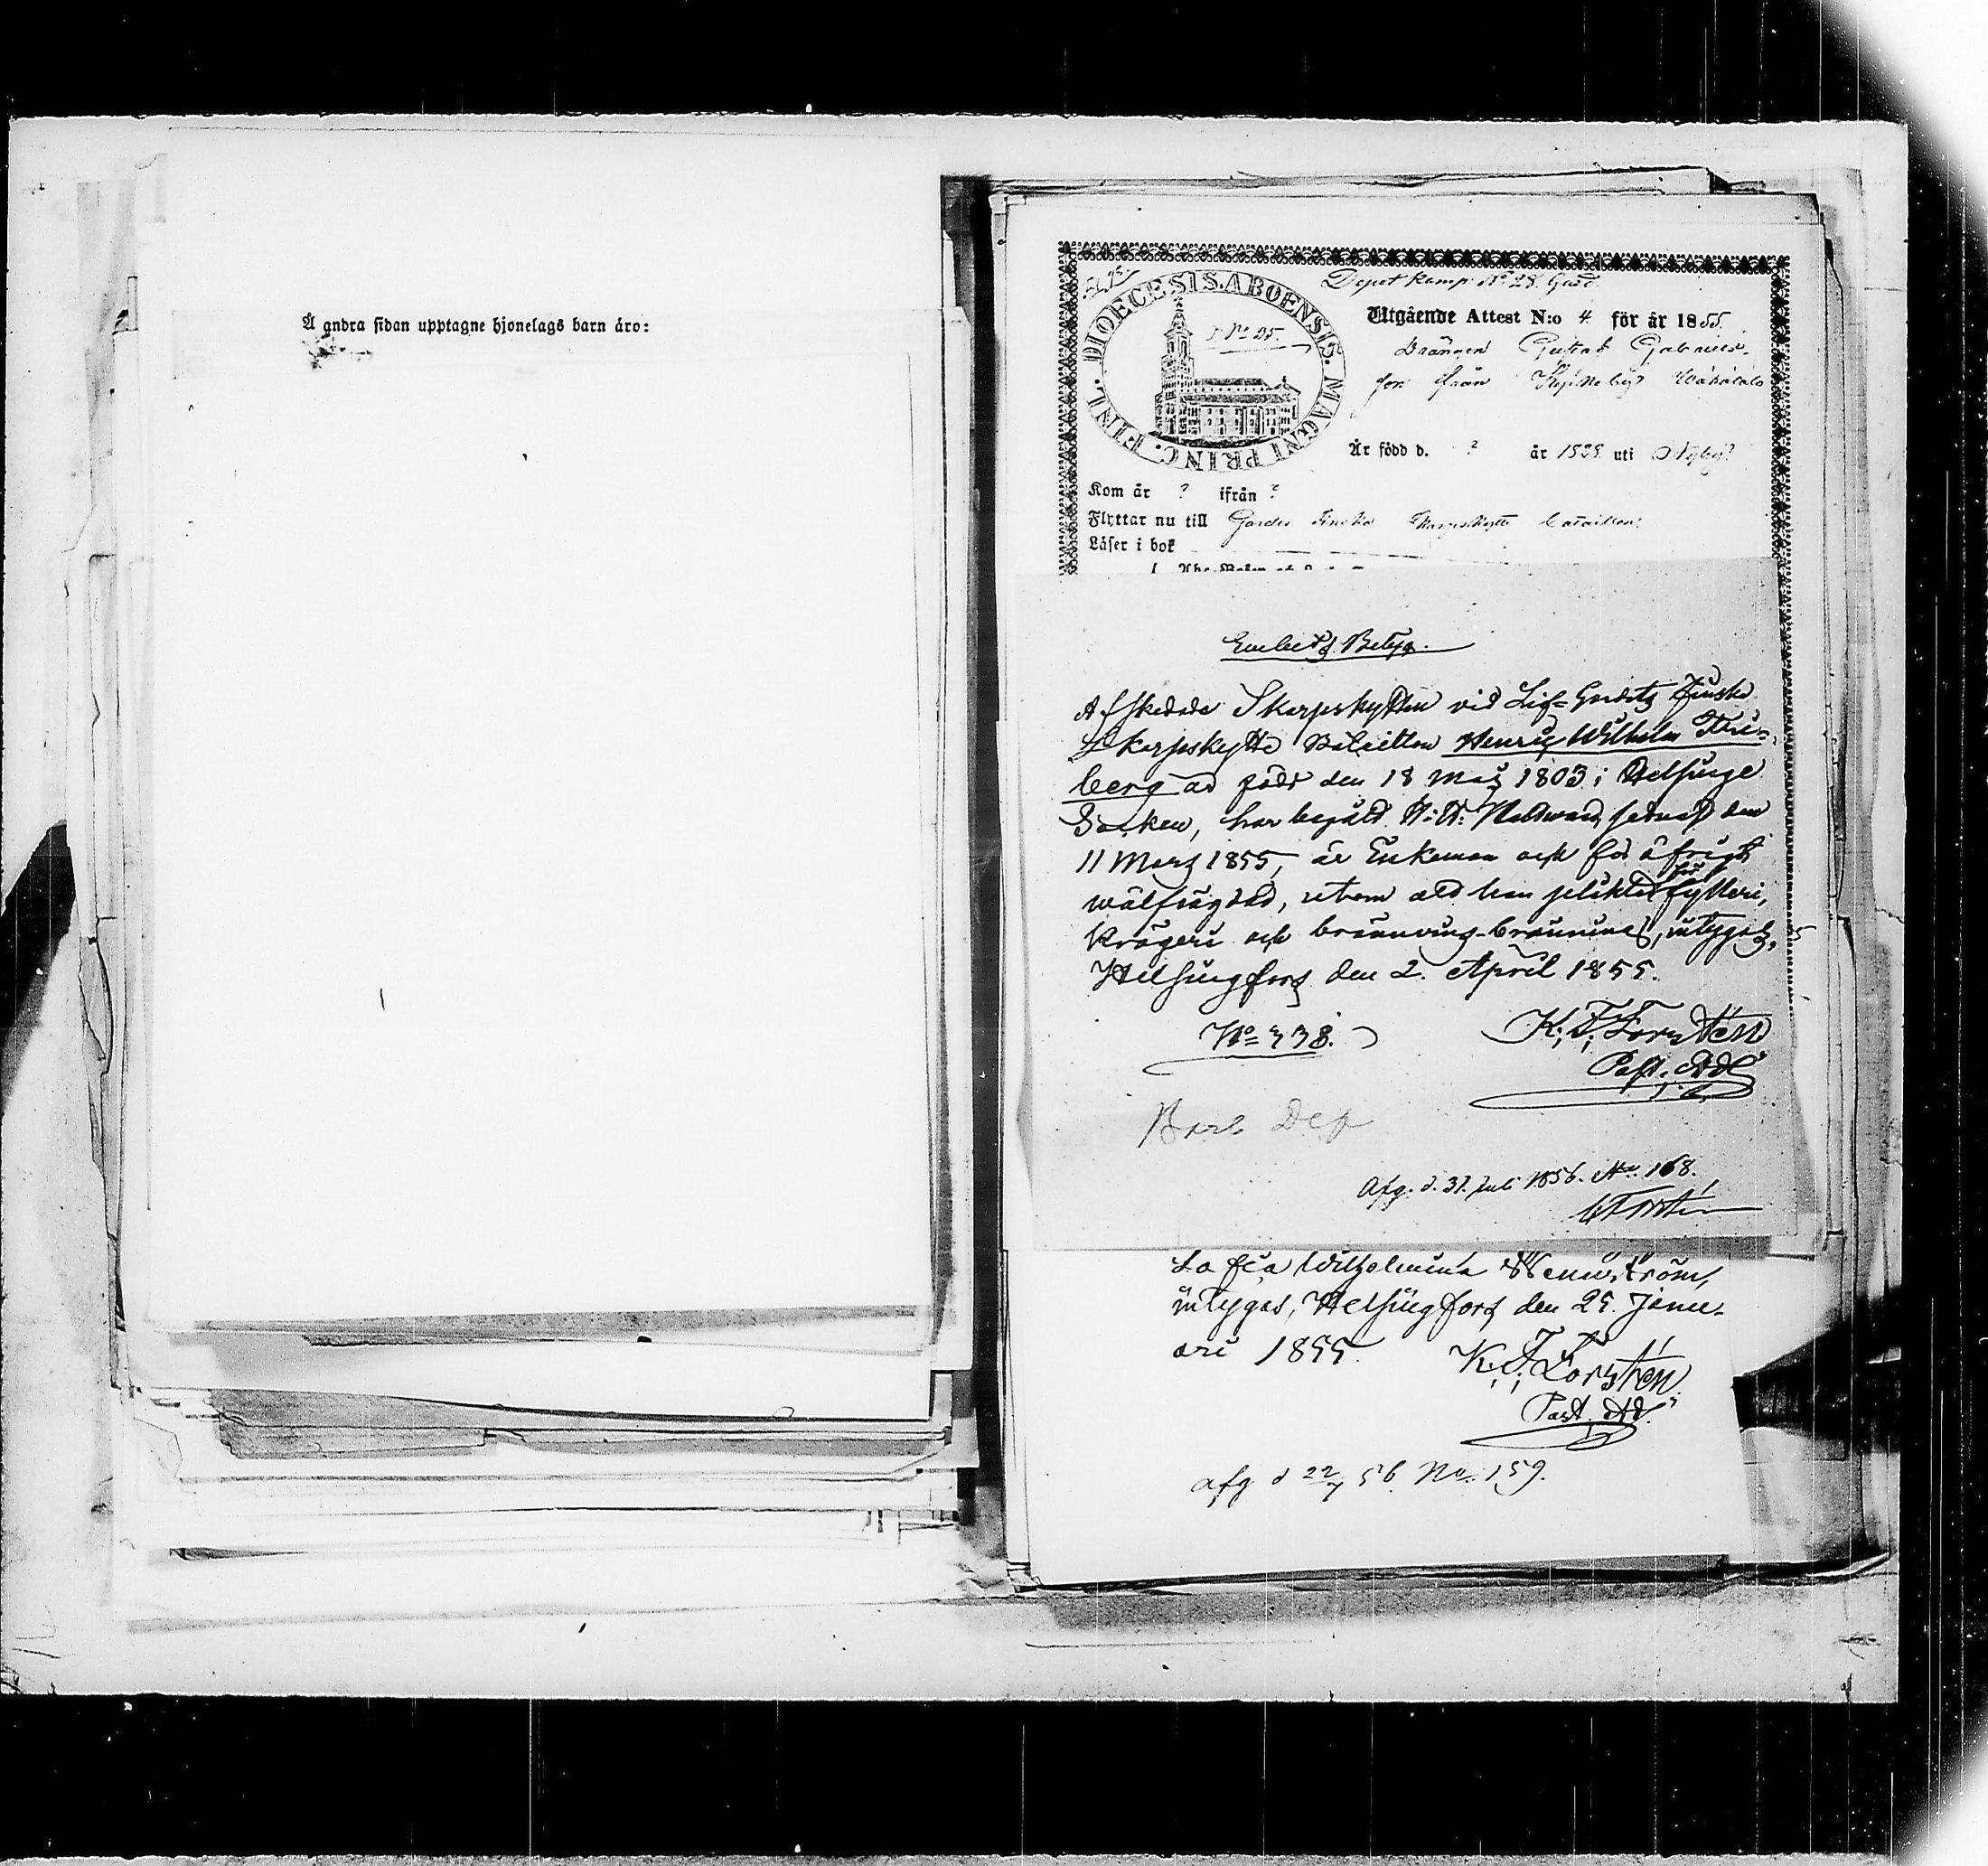 Å andra sidan upptagne hjonelags barn äro:
DIOECESIS. ABOENSIS. MAGNI PRINC. FINL.
No 25.
Depot komp. No 25. Gard.
Utgående Attest N:o 4 för år 1855.
Drängen Gustaf Gabriels-
son från
Är född d. ? år uti Nyby?
Kom år ? ifrån ?
Flyttar nu till Gardes Finska Skarpskytte bataillon.
Läser i bok
Embets Betyg.
Afskedade Skarpskytten vid Lif-Gardets Finska
Skarpskytte Bataillon Henric Wilhelm Fri-
berg är född den 18 Maij 1803 i Helsinge
Socken, har begått H. H. Nattward sednast den
11 Mars 1855, är Enkeman och för öfrigt
wälfrägdad, utom att han pliktat för fylleri,
krögeri och bränvins-bränning, intygas,
Helsingfors den 2. April 1855.
No 338.
K. J. Forstén
Past. Adj.
Afg. d. 31. Juli 1856. No. 168.
Forstén
Sofia Wilhelmina Wennström,
intygas, Helsingfors den 25. Janu-
ari 1855.
K. J. Forstén
Past. Adj.
afg d 22/7 56. No. 159.